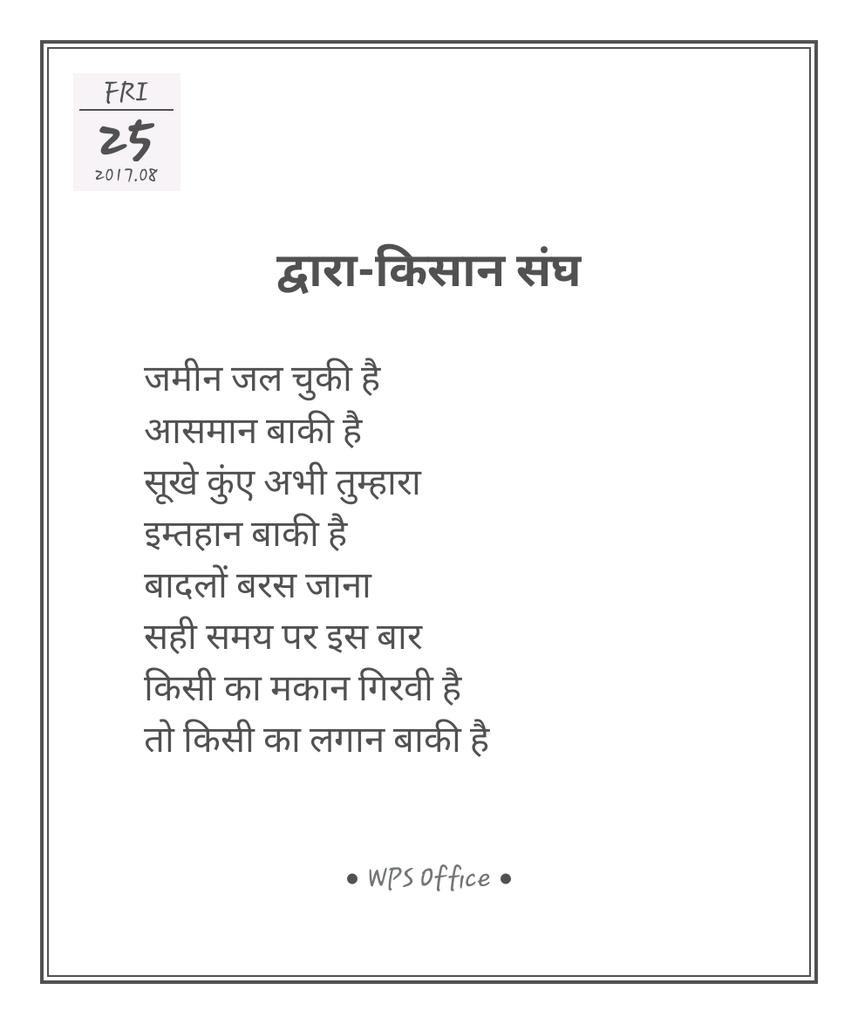 FRI
25
2017.08
द्वारा-किसान संघ
जमीन जल चुकी है
आसमान बाकी है
सूखे कुंए अभी तुम्हारा
इम्तहान बाकी है
बादलों बरस जाना
सही समय पर इस बार
किसी का मकान गिरवी है
तो किसी का लगान बाकी है
• WPS Office •